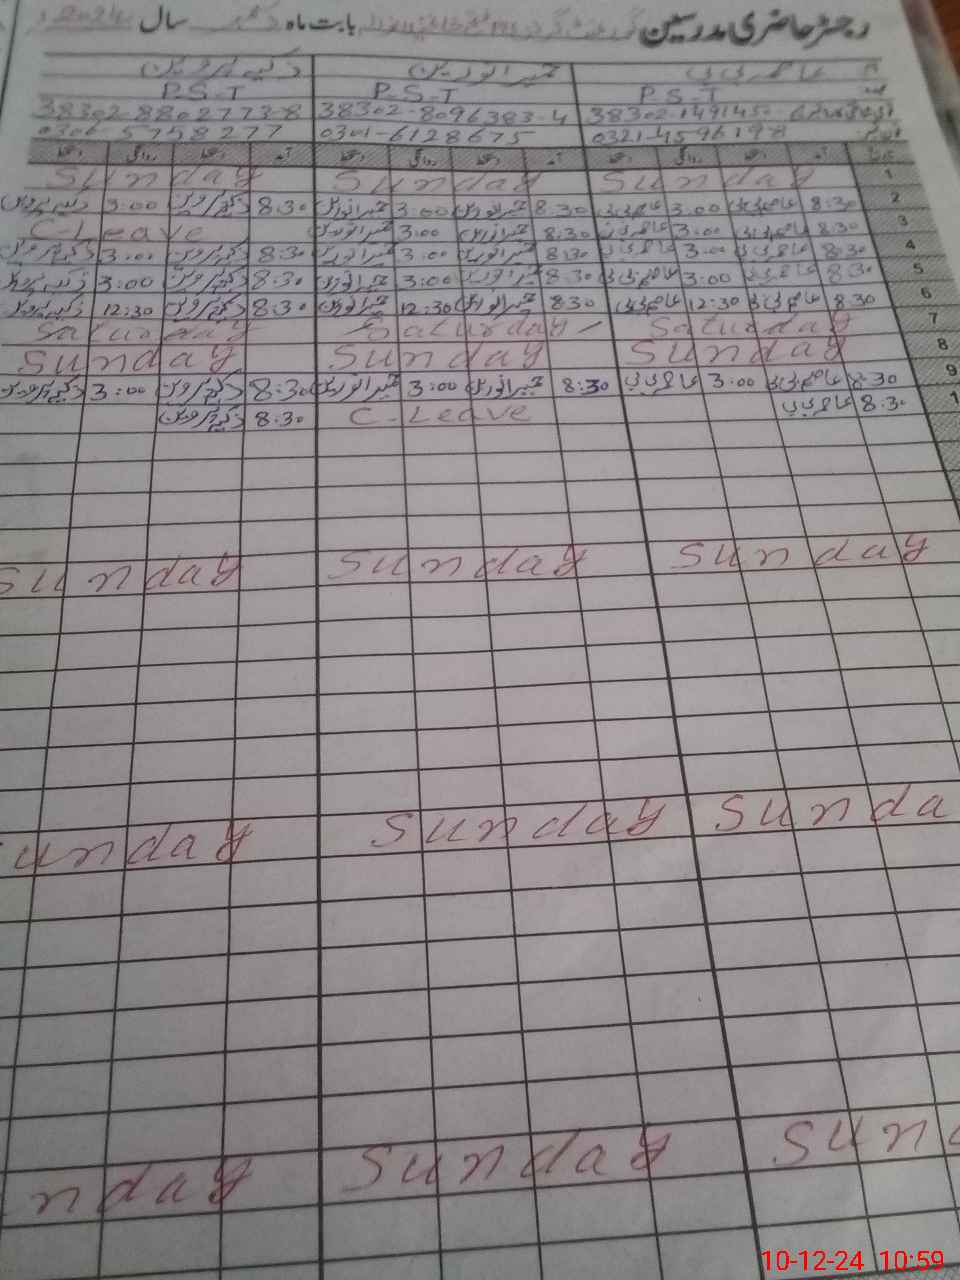 رجسٹر حاضری مدرسین گورنمنٹ گرلز بابت ماہ دسمبر سال 2024
عاصمہ بی بی حمیرا نورین ذکیہ پروین
P.S.T P.S.T P.S.T
38302-8802773-8 38302-8096383-4 38302-1491450
0306-5758277 0301-6128675 0321-4596198
Sunday Sunday Sunday 1
ذکیہ پروین 3:00 ذکیہ پروین 8:30 حمیرا نورین 3:00 حمیرا نورین 8:30 عاصمہ بی بی 3:00 عاصمہ بی بی 8:30 2
C-Leave حمیرا نورین 3:00 حمیرا نورین 8:30 عاصمہ بی بی 3:00 عاصمہ بی بی 8:30 3
ذکیہ پروین 3:00 ذکیہ پروین 8:30 حمیرا نورین 3:00 حمیرا نورین 8:30 عاصمہ بی بی 3:00 عاصمہ بی بی 8:30 4
ذکیہ پروین 3:00 ذکیہ پروین 8:30 حمیرا نورین 3:00 حمیرا نورین 8:30 عاصمہ بی بی 3:00 عاصمہ بی بی 8:30 5
ذکیہ پروین 12:30 ذکیہ پروین 8:30 حمیرا نورین 12:30 حمیرا نورین 830 عاصمہ بی بی 12:30 عاصمہ بی بی 8:30 6
Saturday Saturday Saturday 7
Sunday Sunday Sunday 8
ذکیہ پروین 3:00 ذکیہ پروین 8:30 حمیرا نورین 3:00 حمیرا نورین 8:30 عاصمہ بی بی 3:00 عاصمہ بی بی 8:30 9
ذکیہ پروین 8:30 C-Leave عاصمہ بی بی 8:30 1
Sunday Sunday Sunday
unday Sunday Sunda
nday Sunday Sun
10-12-24 10:59